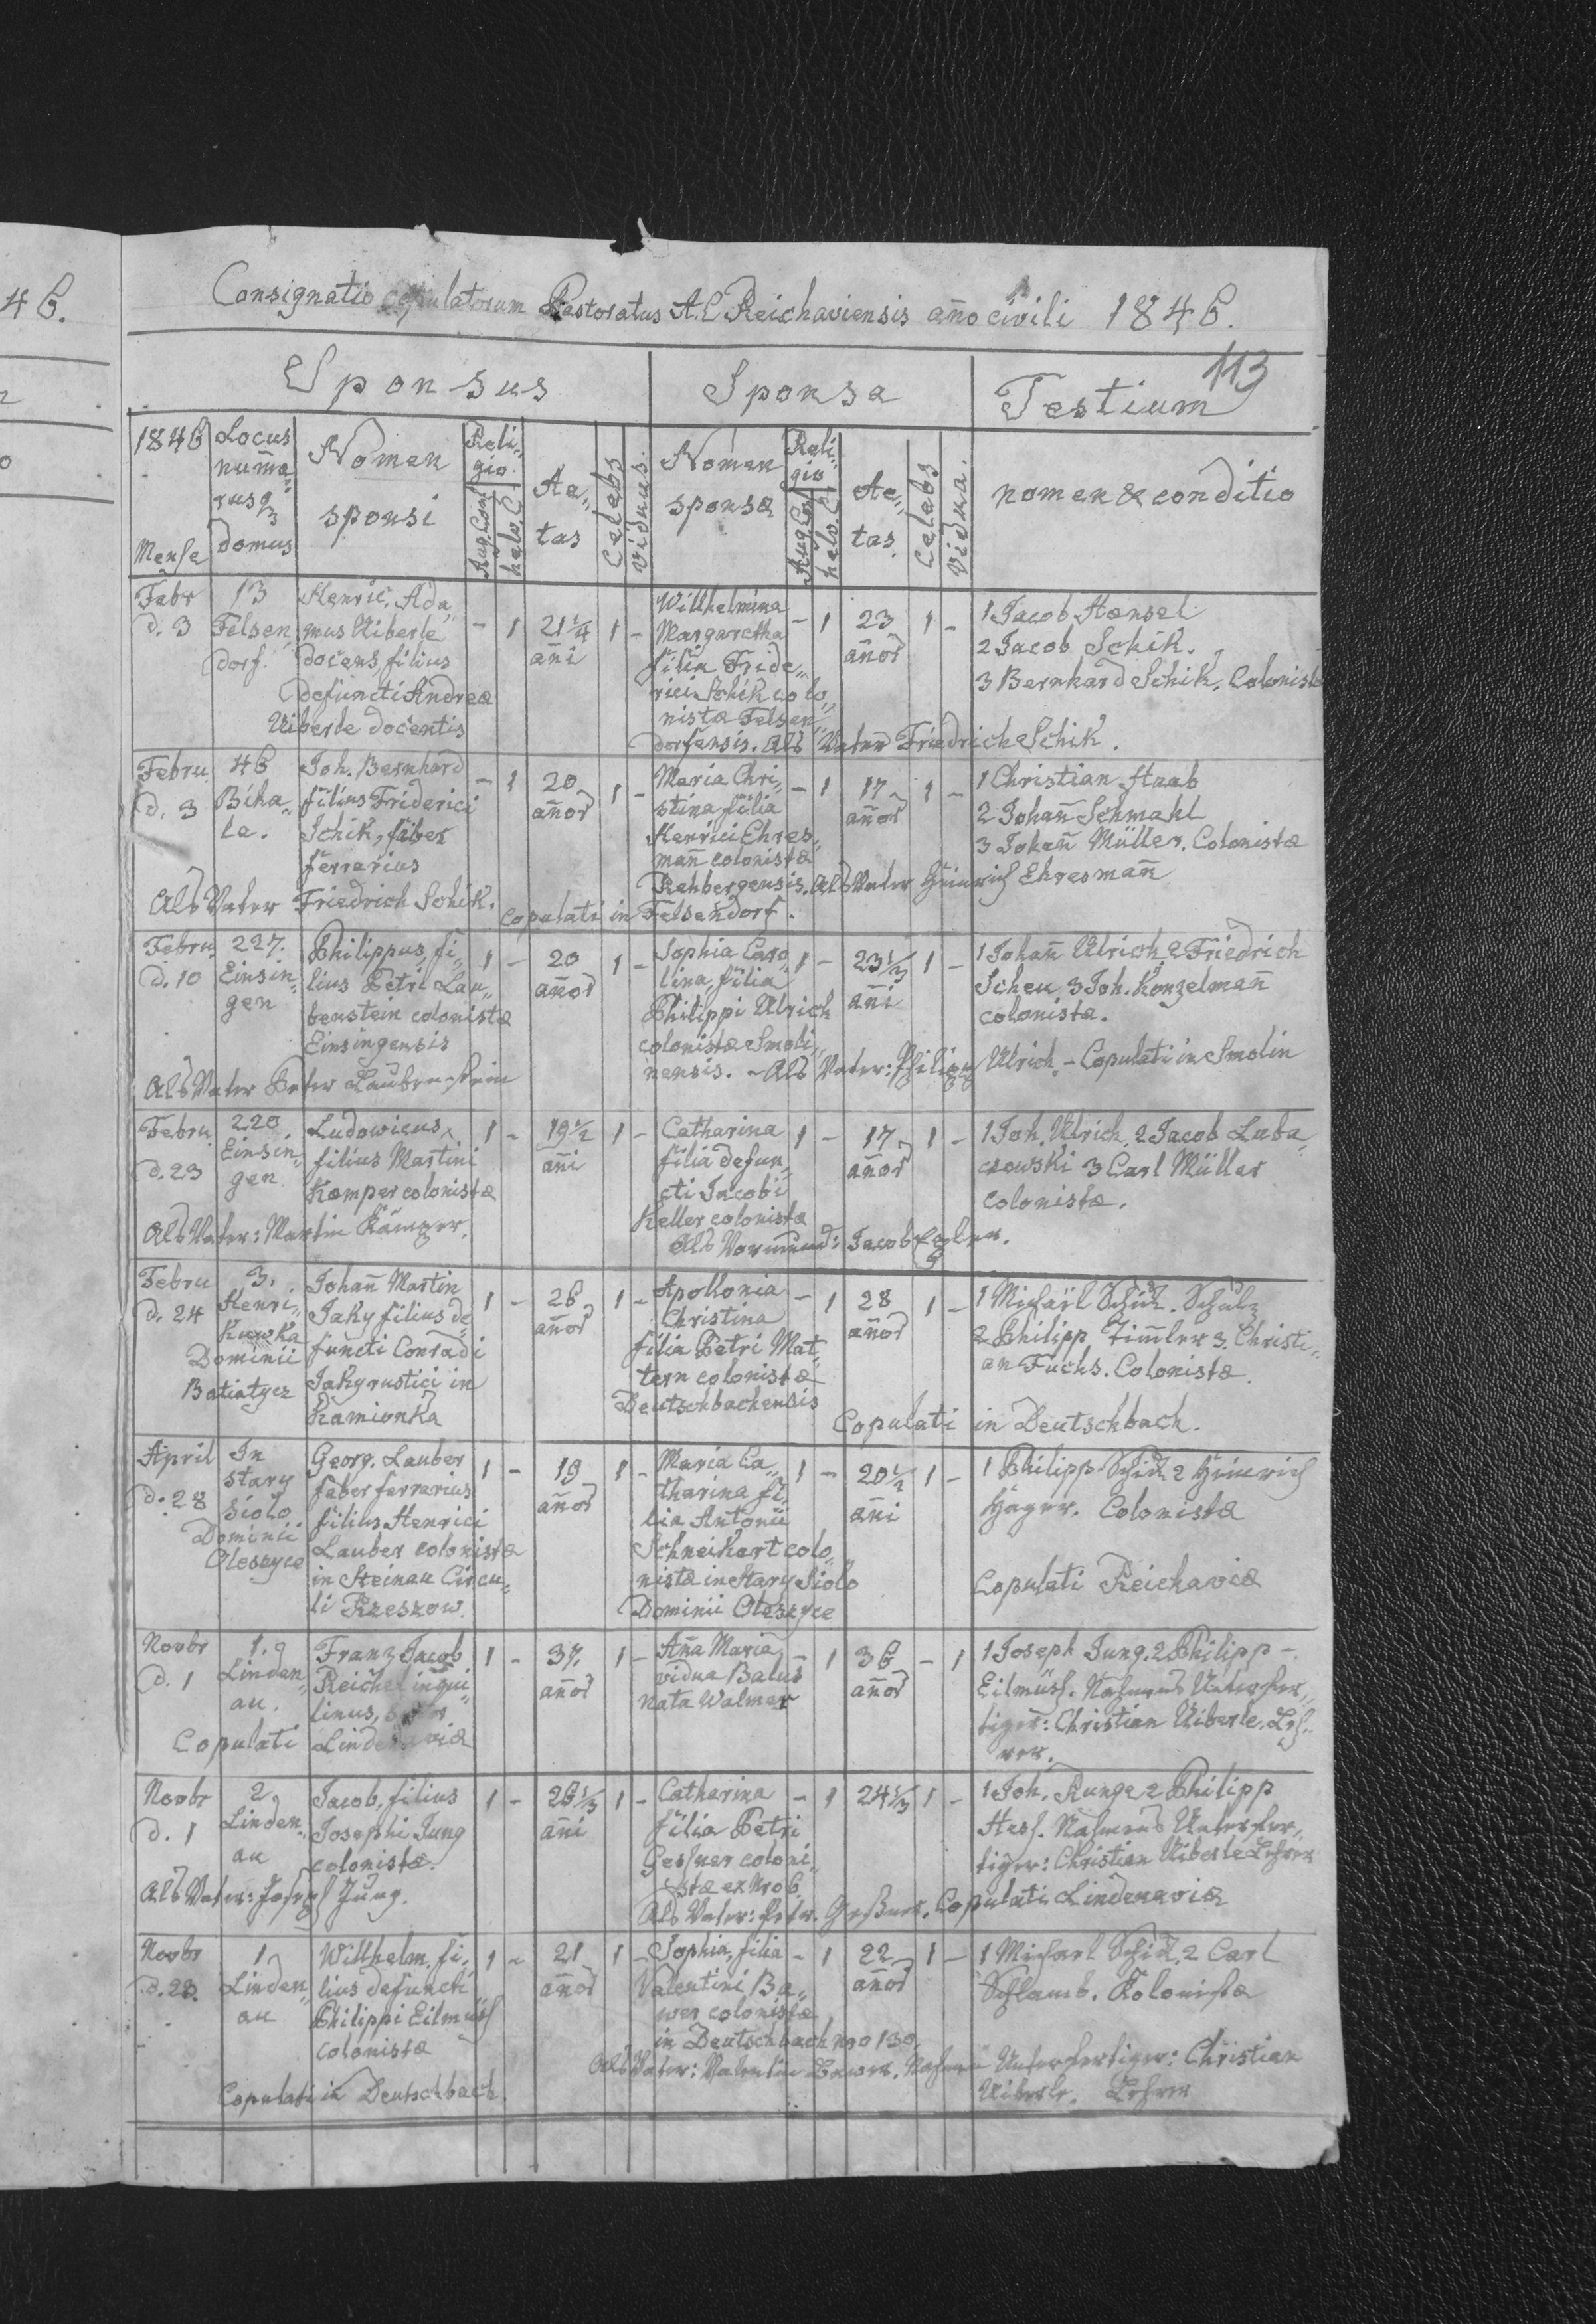 46.
Consignatio copulatorum Pastoratus A.C Reichaviensis año civili 1846.
113
Sponsus
Sponsa
Testium
1846
Mense
Locus
nume
rusq
domus
Nomen
sponsi
Reli„
gio
Aug. Conf
helv. C.
Ae„
tas
Celebs
Viduus.
Nomen
sponsæ
Reli„
gio
Aug. Conf
helv. C.
Ae„
tas.
Celebs
Vidua.
nomen & conditio
Febr
d. 3
13
Felsen„
dorf.
Henric. Ada„
mus Uiberle
docens, filius
defuncti Andreæ
Uiberle docentis
- 1
21¼
añi
1 -
Willhelmina
Margaretha
filia Fride„
rici Schik colo„
nistæ Felsen„
dorfensis. Als Vater Friedrich Schik.
- 1
23
añor
1 -
1 Jacob Hænsel
2 Jacob Schik.
3 Bernhard Schik. Colonistæ
Febru
d. 3
46
Biha„
le.
Joh. Bernhard
filius Friderici
Schik, faber
ferrarius
Als Vater Friedrich Schik.
- 1
20
añor
1 -
Maria Chri„
stina filia
Henrici Ehres„
mañ colonistæ
Rehbergensis. Als Vater Heinrich Ehresmañ
Copulati in Felsendorf.
- 1
17
añor
1 -
1 Christian Staab
2 Johañ Schmahl
3 Johañ Müller. Colonistæ
Febru
d. 10
227.
Einsin„
gen
Philippus, fi„
lius Petri Lau„
benstein colonistæ
Einsingensis
Als Vater Peter Laubenstein
1 -
20
añor
1 -
Sophia Caro„
lina, filia
Philippi Ulrich
colonistæ Smoli„
nensis. - Als Vater: Philipp Ulrich. - Copulati in Smolin
1 -
23⅓
añi
1 -
1 Johañ Ulrich 2 Friedrich
Scheu 3 Joh. Konzelmañ
colonistæ.
Febru
d. 23
220
Einsin„
gen.
Ludowicus
filius Martini
Kæmper colonistæ
Als Vater: Martin Kämper.
1 -
19½
añi
1 -
Catharina
filia defun„
cti Jacobi
Keller colonistæ
Als Vormund: Jacob
1 -
17
añor
1 -
1 Joh. Ulrich 2 Jacob Luba„
czowski 3 Carl Müller
colonistæ.
Febru
d. 24
3.
Henri„
kuwka
Dominii
Batiatycz
Johañ Martin
Jaky filius de„
functi Conradi
Jaky rustici in
Kamionka
1 -
26
añor
1 -
Apollonia
Christina
filia Petri Mat„
tern colonistæ
Deutschbachensis
- 1
28
añor
1 -
1 Michaël Schik. Schulz
2 Philipp Zimler 3. Christi„
an Fuchs. Colonistæ.
Copulati in Deutschbach.
April
d. 28
In
stary
siolo
Dominii
Oleszyce
Georg. Lauber
faber ferrarius
filius Henrici
Lauber colonistæ
in Steinau Circu„
li Rzeszow.
1 -
19
añor
1 -
Maria Ca„
tharina fi„
lia Antonii
Schneikart colo„
nistæ in Stary Siolo
Dominii Oleszyce
1 -
20½
añi
1 -
1 Philipp Schik 2 Heinrich
Hager. Colonistæ
Copulati Reichaviæ
Novbr
d. 1
1.
Linden„
au.
Franz Jacob
Reichel inqui„
linus,
Copulati Lindenaviæ
1 -
37.
añor
1 -
Aña Maria
vidua Balus
nata Walmer
- 1
36
añor
- 1
1 Joseph Jung. 2 Philipp
Eilmüss. Nahmens Unterfer„
tiger: Christian Uiberle. Leh„
rer.
Novbr
d. 1
2
Linden„
au
Jacob, filius
Josephi Jung
colonistæ.
Als Vater: Joseph Jung.
1 -
26⅓
añi
1 -
Catharina
filia Petri
Gesner coloni„
stæ ex Nro 6
Als Vater: Petr. Geßner. Copulati Lindenaviæ
- 1
24⅓
1 -
1 Joh. Runge 2 Philipp
Hess. Nahmens Unterfer„
tiger: Christian Uiberle Lehrer
Novbr
d. 28.
1
Linden„
au
Willhelm, fi„
lius defuncti
Philippi Eilmüss
colonistæ
Copulati in Deutschbach.
1 -
21
añor
1 -
Sophia, filia
Valentini Ba„
wer colonistæ
in Deutschbach Nro 130
Als Vater: Valentin Bawer. Nahmens Unterfertiger: Christian
Uiberle. Lehrer
- 1
22
añor
1 -
1 Michael Schik 2 Carl
Schlamb. Kolonistæ